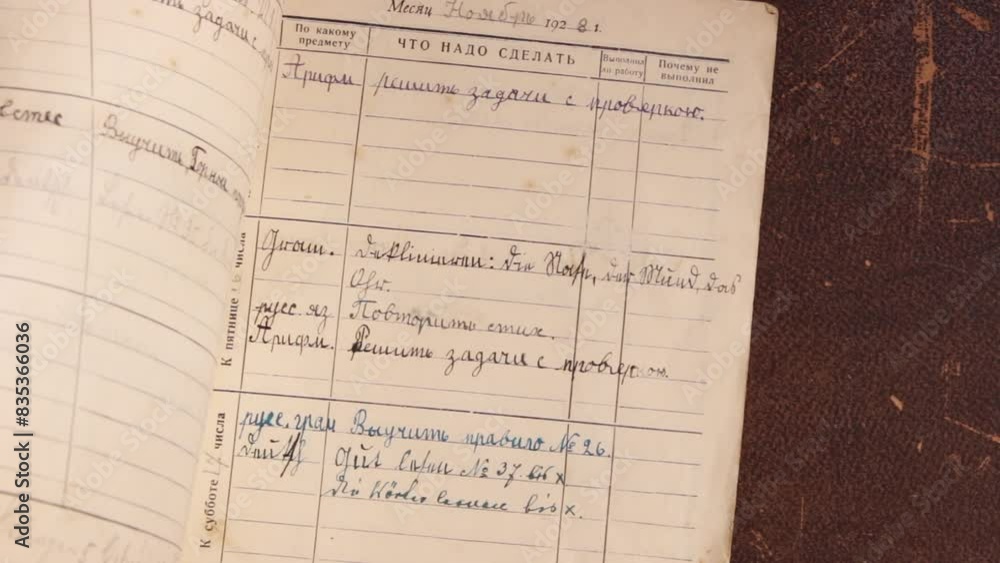 задачи с
естес Выучить
Месяц Ноябрь 1928 г.
По какому предмету ЧТО НАДО СДЕЛАТЬ Выполнил ли работу Почему не выполнил
Арифм решить задачи с проверкою.
К пятнице числа
Gram. Deklinieren: die Nase, der Mund, das
Ohr.
русс. яз. Повторить стих.
Арифм. Решить задачи с проверкою.
К субботе числа
русс. грам Выучить правило № 26.
Deutsch Gut lesen № 37. bis x
die Wörter lernen bis x.
Adobe Stock | #835366036